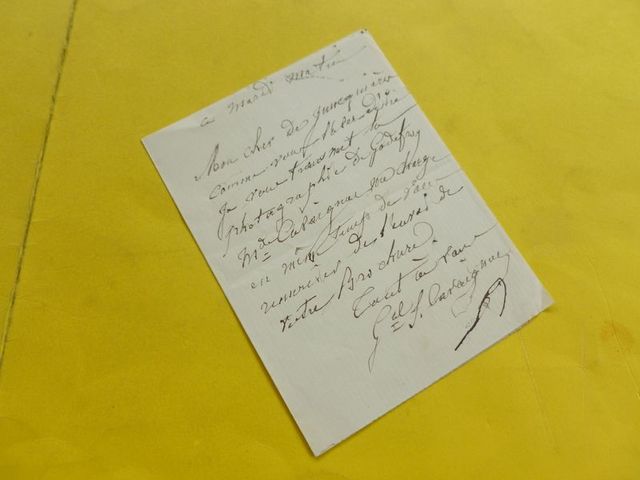 ce mardi matin
Mon cher de
comme vous
Je vous transmet la
photographie de Godefroy
Mde Cavaignac me charge
en même temps de vous
remercier de l'envoi de
votre Brochure.
Tout à vous
Gal J. Cavaignac